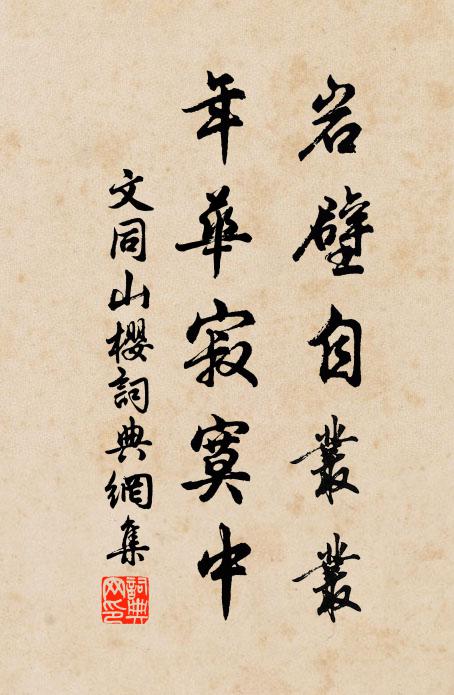 岩壁自叢叢
年華寂寞中
文同山櫻詞典網集
詞典網印